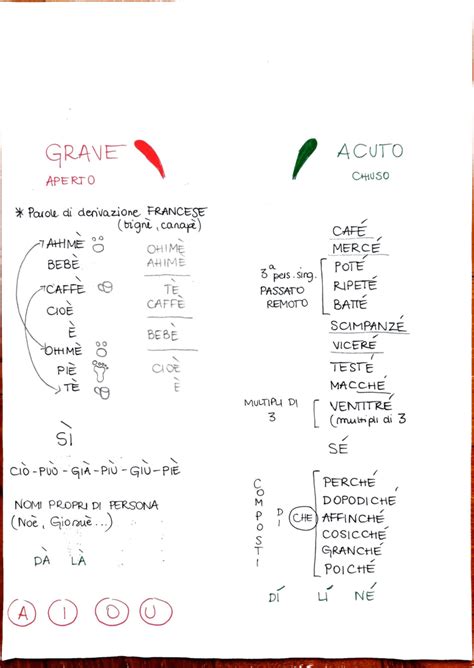 GRAVE
APERTO
* Parole di derivazione FRANCESE
(bignè, canapè)
AHIMÈ
BEBÈ
CAFFÈ
CIOÈ
È
OHIMÈ
PIÈ
TÈ
OHIMÈ
AHIMÈ
TÈ
CAFFÈ
BEBÈ
CIOÈ
È
SÌ
CIÒ-PUÒ-GIÀ-PIÙ-GIÙ-PIÈ
NOMI PROPRI DI PERSONA
(Noè, Giosuè...)
DÀ LÀ
A I O U
ACUTO
CHIUSO
CAFÉ
MERCÉ
3ª pers. sing.
PASSATO
REMOTO
POTÉ
RIPETÉ
BATTÉ
SCIMPANZÉ
VICERÉ
TESTÉ
MACCHÉ
MULTIPLI DI
3
VENTITRÉ
(multipli di 3
SÉ
COMPOSTI
DI
CHE
PERCHÉ
DOPODICHÉ
AFFINCHÉ
COSICCHÉ
GRANCHÉ
POICHÉ
DÍ LÍ NÉ